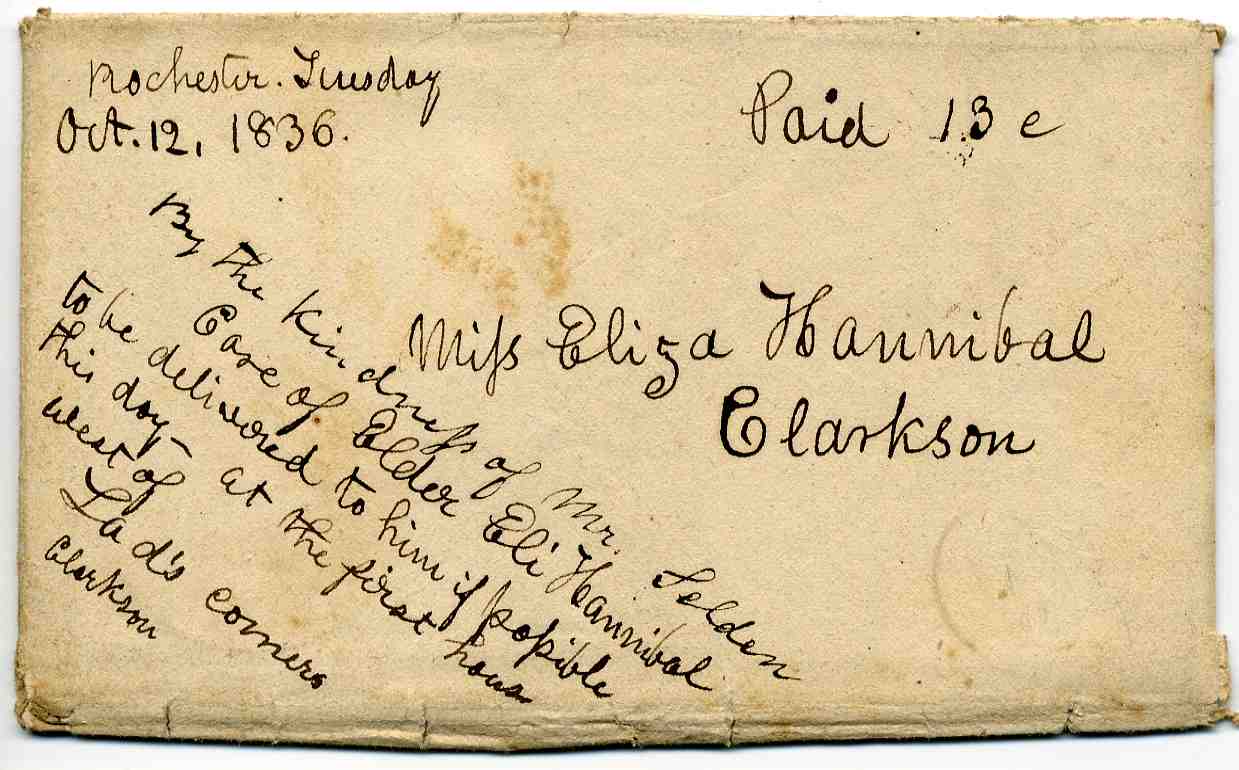 Rochester. Tuesday
Oct. 12, 1836.
Paid 13 c
By the kindneſs of Mr. Selden
Care of Elder Eli Hannibal
to be delivered to him if poſsible
this day - at the first house
west of
Lad's corners
Clarkson
Miſs Eliza Hannibal
Clarkson